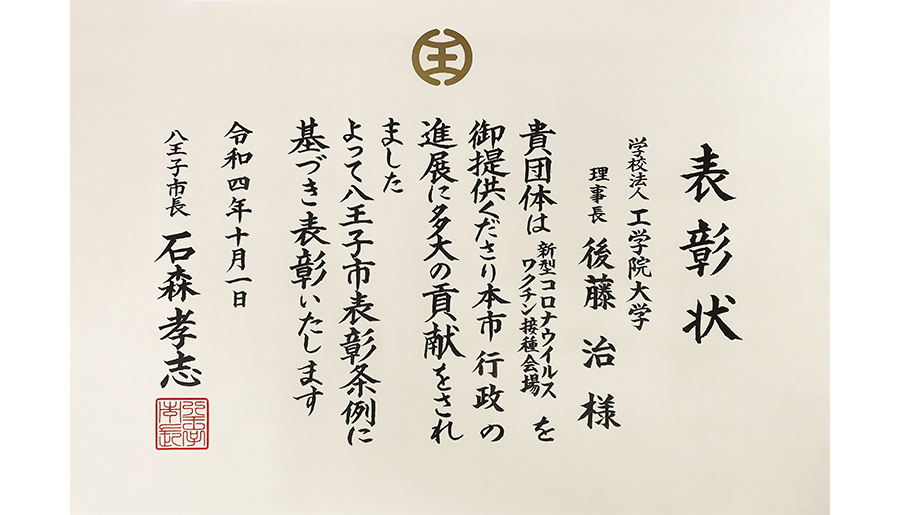 表彰状
学校法人 工学院大学
理事長 後藤 治 様
貴団体は新型コロナウイルスワクチン接種会場を
御提供くださり本市行政の
進展に多大の貢献をされ
ました
よって八王子市表彰条例に
基づき表彰いたします
令和四年十月一日
八王子市長 石森孝志